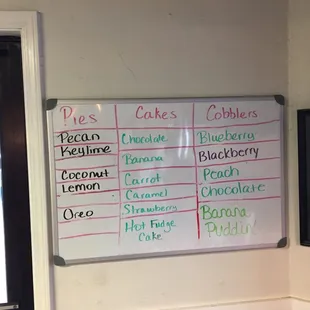 Pies
Pecan
Keylime
Coconut
Lemon
Oreo
Cakes
Chocolate
Banana
Carrot
Caramel
Strawberry
Hot Fudge
Cake
Cobblers
Blueberry
Blackberry
Peach
Chocolate
Banana
Puddin